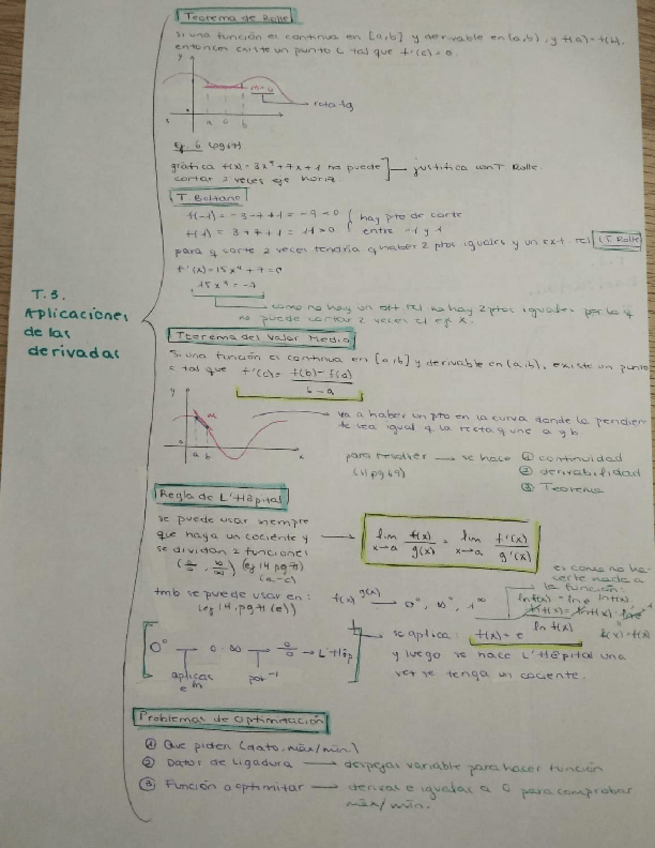 Teorema de Rolle
Si una función es continua en [a,b] y derivable en (a,b), y f(a)=f(b),
entonces existe un punto c tal que f'(c)=0.
y
m=0
recta tg
a c b
x
Ej. 6 (pg 67)
gráfica f(x)=3x⁵+7x+1 no puede
cortar 2 veces eje horiz
justifica con T. Rolle.
T. Bolzano
f(-1)=-3-7+1=-9<0
f(1)=3+7+1=11>0
hay pto de corte
entre -1 y 1
para q corte 2 veces tendría q haber 2 ptos iguales y un ext. rel
f'(x)=15x⁴+7=0
15x⁴=-7
como no hay un ext rel no hay 2 ptos iguales por lo q
no puede cortar 2 veces el ej x.
T.3.
Aplicaciones
de las
derivadas
Teorema del Valor Medio
Si una función es continua en [a,b] y derivable en (a,b), existe un punto
c tal que f'(c)= f(b)-f(a) / b-a
y
a b
x
va a haber un pto en la curva donde la pendien
te sea igual q la recta q une a y b
para resolver → se hace ① continuidad
(11 pg 69) ② derivabilidad
③ Teorema
Regla de L'Hôpital
se puede usar siempre
que haya un cociente y
se dividan 2 funciones
(0/0, ∞/∞) (ej 14 pg 71)
(a-c)
lim x→a f(x)/g(x) = lim x→a f'(x)/g'(x)
es como no ha-
cerle nada a
la función:
tmb se puede usar en: f(x)^g(x) → 0⁰, ∞⁰, 1^∞
(ej 14, pg 71 (e))
se aplica: f(x)=e^ln f(x)
y luego se hace L'Hôpital una
vez se tenga un cociente.
0⁰ 0·∞ 0/0 → L'Hôp
aplicas
e ln
por ⁻¹
Problemas de Optimización
① Que piden (dato, máx/mín.)
② Datos de ligadura → despejas variable para hacer función
③ Función a optimizar → derivas e igualas a 0 para comprobar
máx/mín.